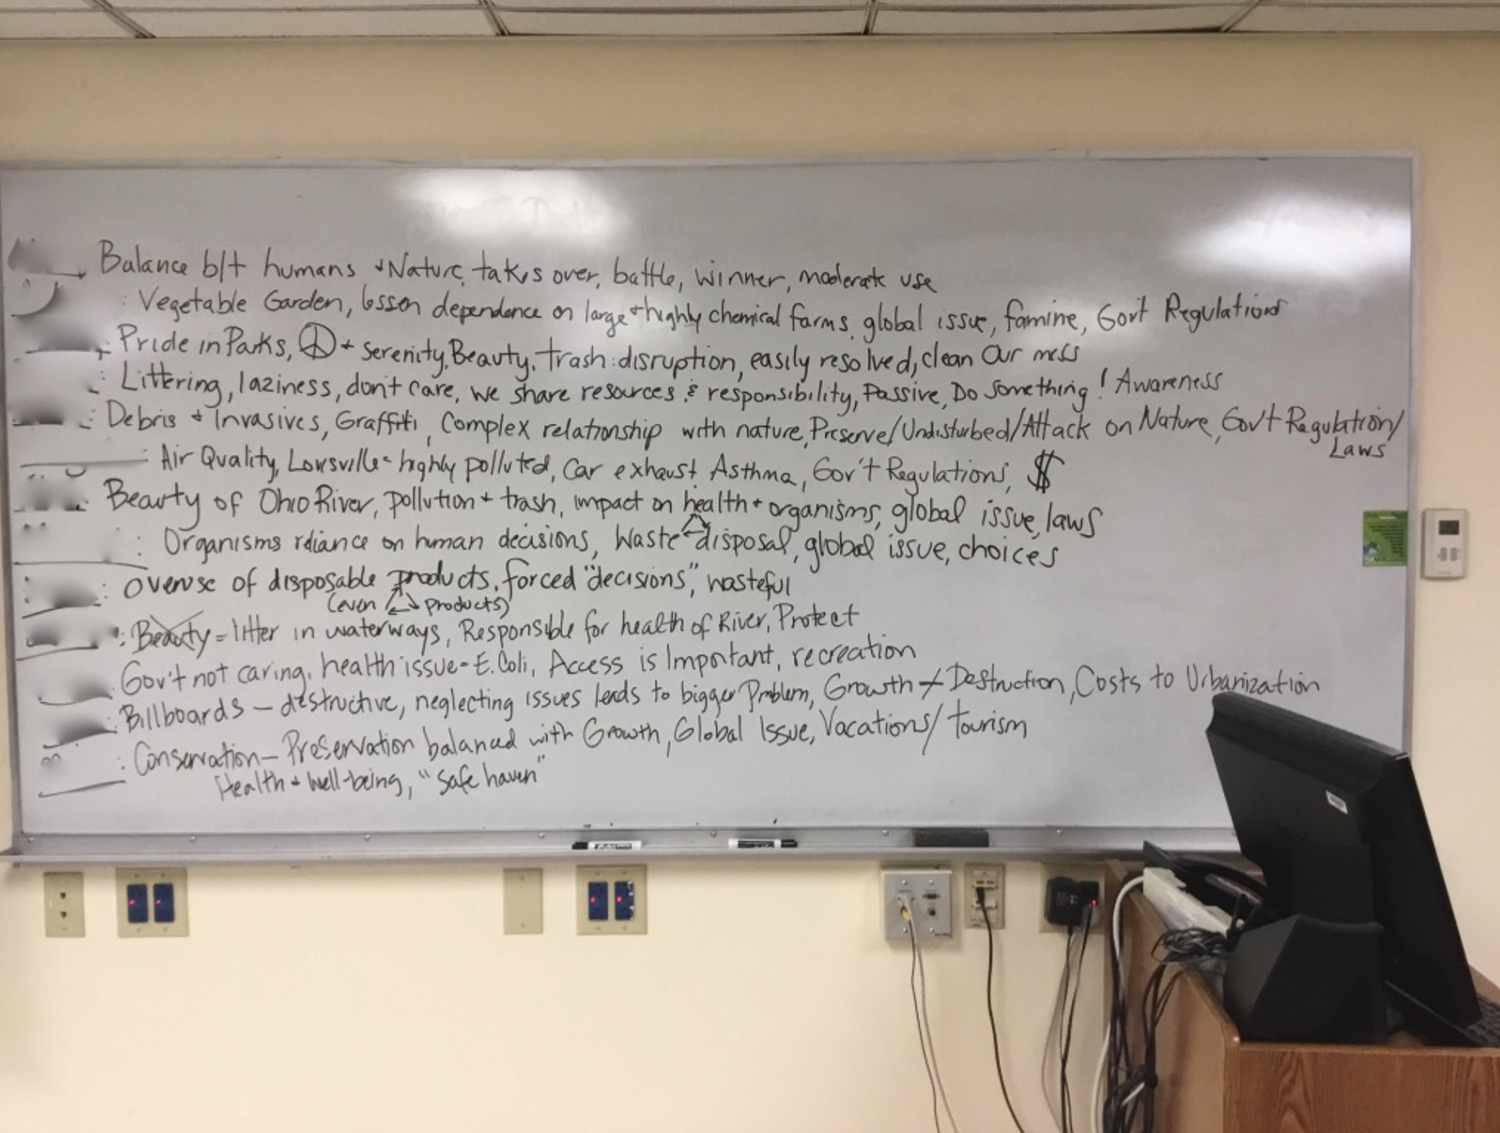 Balance b/t humans + Nature, takes over, battle, winner, moderate use
: Vegetable Garden, lessen dependence on large + highly chemical farms, global issue, famine, Gov't Regulations
: Pride in Parks, ☮ + serenity, Beauty, trash: disruption, easily resolved, clean our mess
: Littering, laziness, don't care, we share resources & responsibility, Passive, Do Something! Awareness
: Debris + Invasives, Graffiti, Complex relationship with nature, Preserve/Undisturbed/Attack on Nature, Gov't Regulation/
Laws
: Air Quality, Lowsville - highly polluted, Car exhaust Asthma, Gov't Regulations, $
Beauty of Ohio River, pollution + trash, impact on health + organisms, global issue, laws
: Organisms reliance on human decisions, Waste disposal, global issue, choices
: Overuse of disposable products, forced "decisions", wasteful
(even ♺ products)
: Beauty = litter in waterways, Responsible for health of River, Protect
: Gov't not caring, health issue - E. Coli, Access is Important, recreation
: Billboards - destructive, neglecting issues leads to bigger Problem, Growth ≠ Destruction, Costs to Urbanization
: Conservation - Preservation balanced with Growth, Global Issue, Vacations/tourism
Health + Well-being, "safe haven"